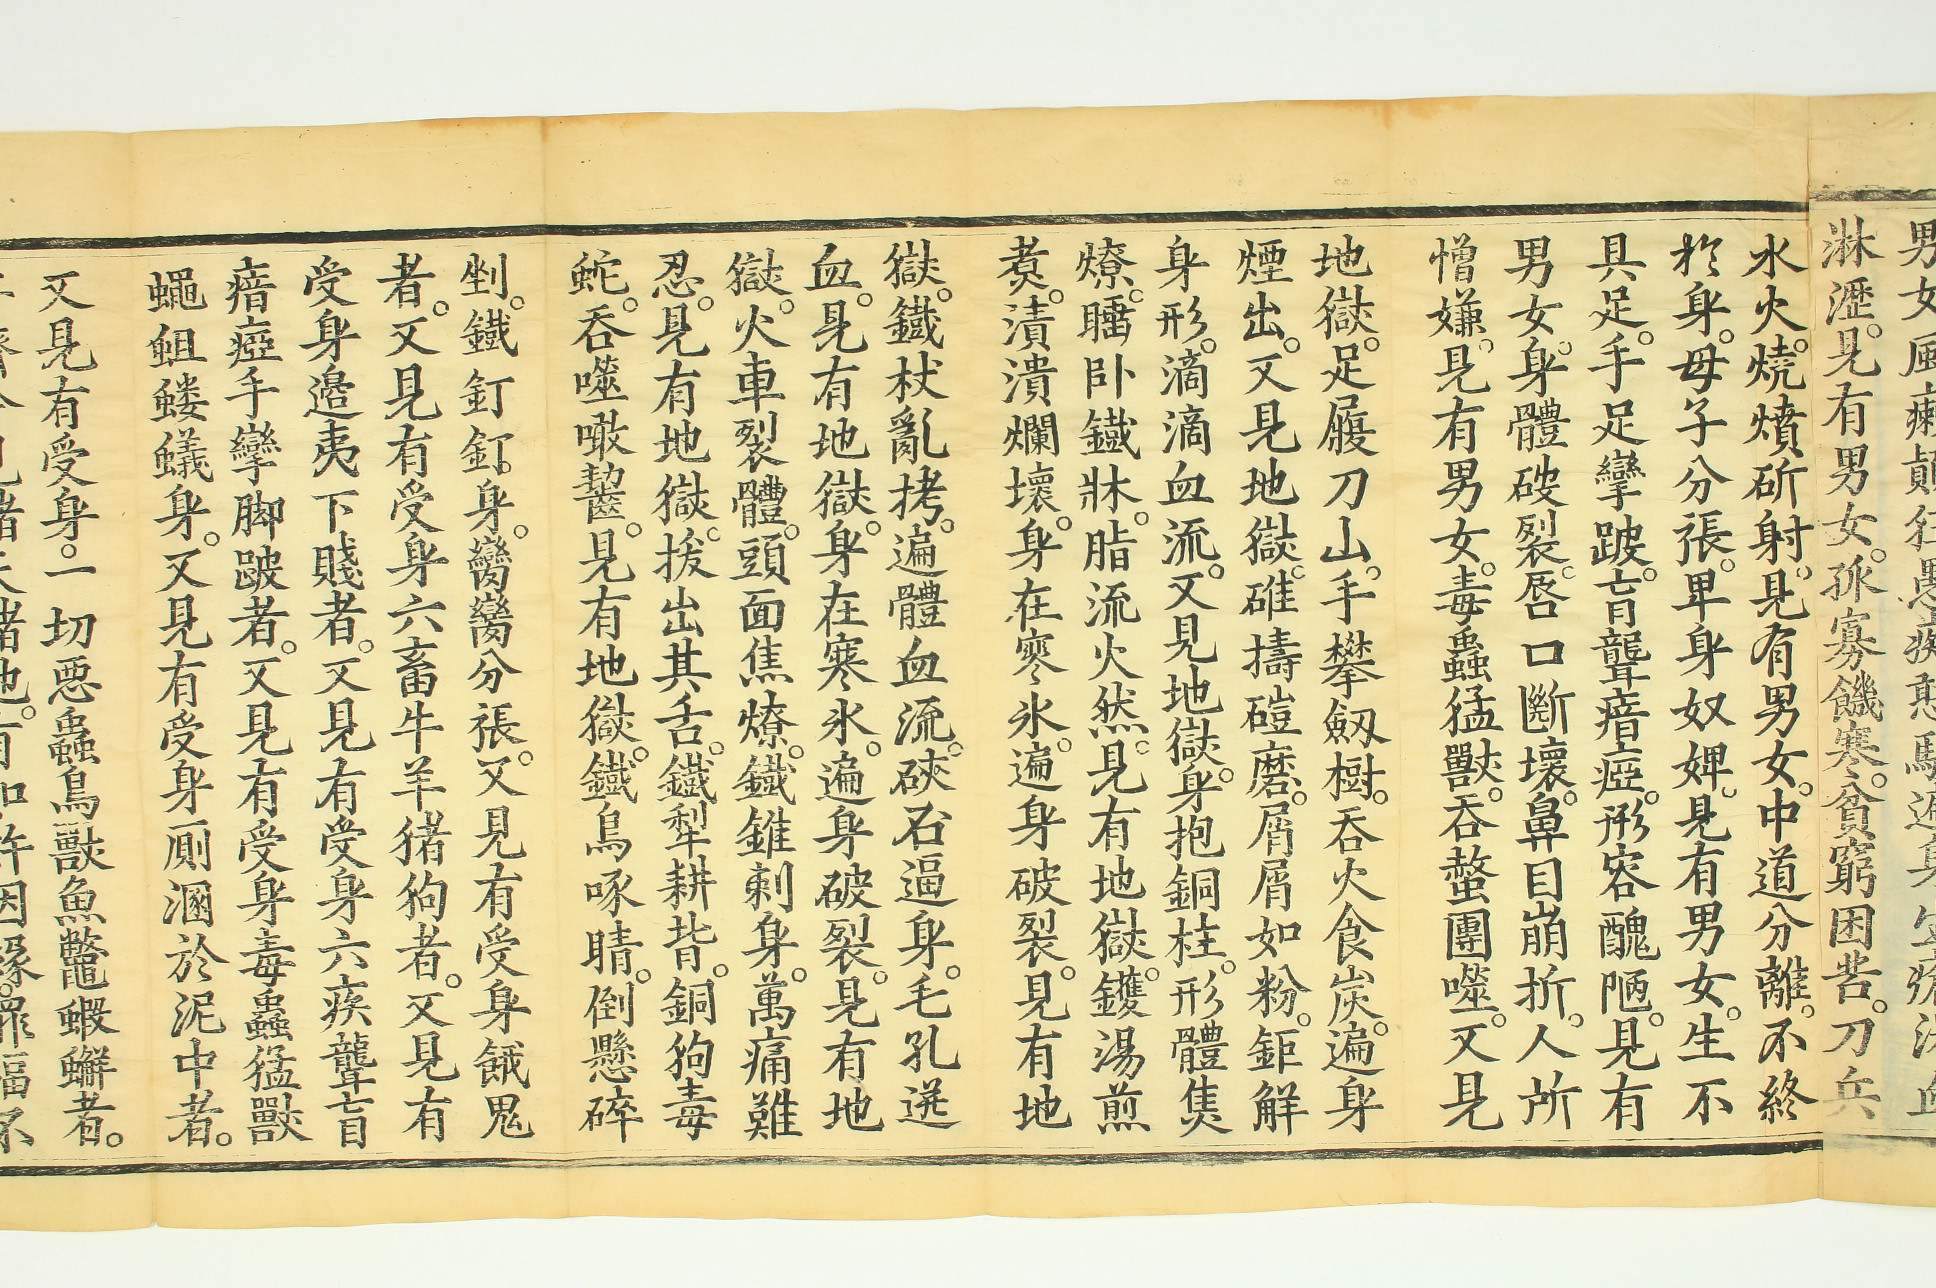 男女風癩顛狂愚癡憃騃遍身生瘡沈血
淋瀝。見有男女。孤寡饑寒。貧窮困苦。刀兵
水火。燒燌斫射。見有男女。中道分離。不終
於身。母子分張。卑身奴婢。見有男女。生不
具足。手足攣跛。盲聾瘖瘂。形容醜陋。見有
男女。身體破裂。唇口斷壞。鼻目崩折。人所
憎嫌。見有男女。毒蟲猛獸。吞螫團噬。又見
地獄。足履刀山。手攀劒樹。吞火食炭。遍身
煙出。又見地獄。碓擣磑磨。屑屑如粉。鉅解
身形。滴滴血流。又見地獄。身抱銅柱。形體焦
燎。𦢊臥鐵牀。脂流火然。見有地獄。鑊湯煎
煑。漬潰爛壞。身在寒氷。遍身破裂。見有地
獄。鐵杖亂拷。遍體血流。硤石逼身。毛孔迸
血。見有地獄。身在寒氷。遍身破裂。見有地
獄。火車裂體。頭面焦燎。鐵錐刺身。萬痛難
忍。見有地獄。拔出其舌。鐵犁耕背。銅狗毒
蛇。吞噬噉齧。見有地獄。鐵烏啄睛。倒懸碎
剉。鐵釘釘身。臠臠分張。又見有受身餓鬼
者。又見有受身六畜牛羊猪狗者。又見有
受身邊夷下賤者。又見有受身六疾聾盲
瘖瘂手攣脚跛者。又見有受身毒蟲猛獸
蠅蛆螻蟻身。又見有受身厠溷於泥中者。
又見有受身。一切惡蟲鳥獸魚鼈蝦蠏者。